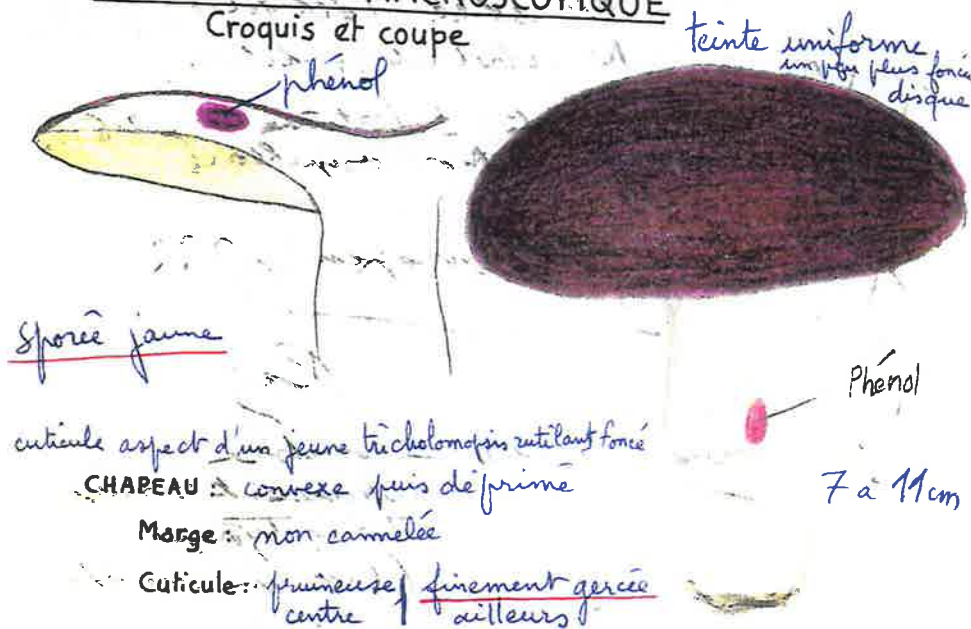 MACROSCOPIQUE
Croquis et coupe
teinte uniforme,
un peu plus foncé
disque
phénol
Sporée jaune
Phénol
cuticule aspect d'un jeune tricholomopsis rutilant foncé
CHAPEAU : convexe puis déprimé
7 à 11 cm
Marge : non cannelée
Cuticule : pruineuse / finement gercée
centre ailleurs